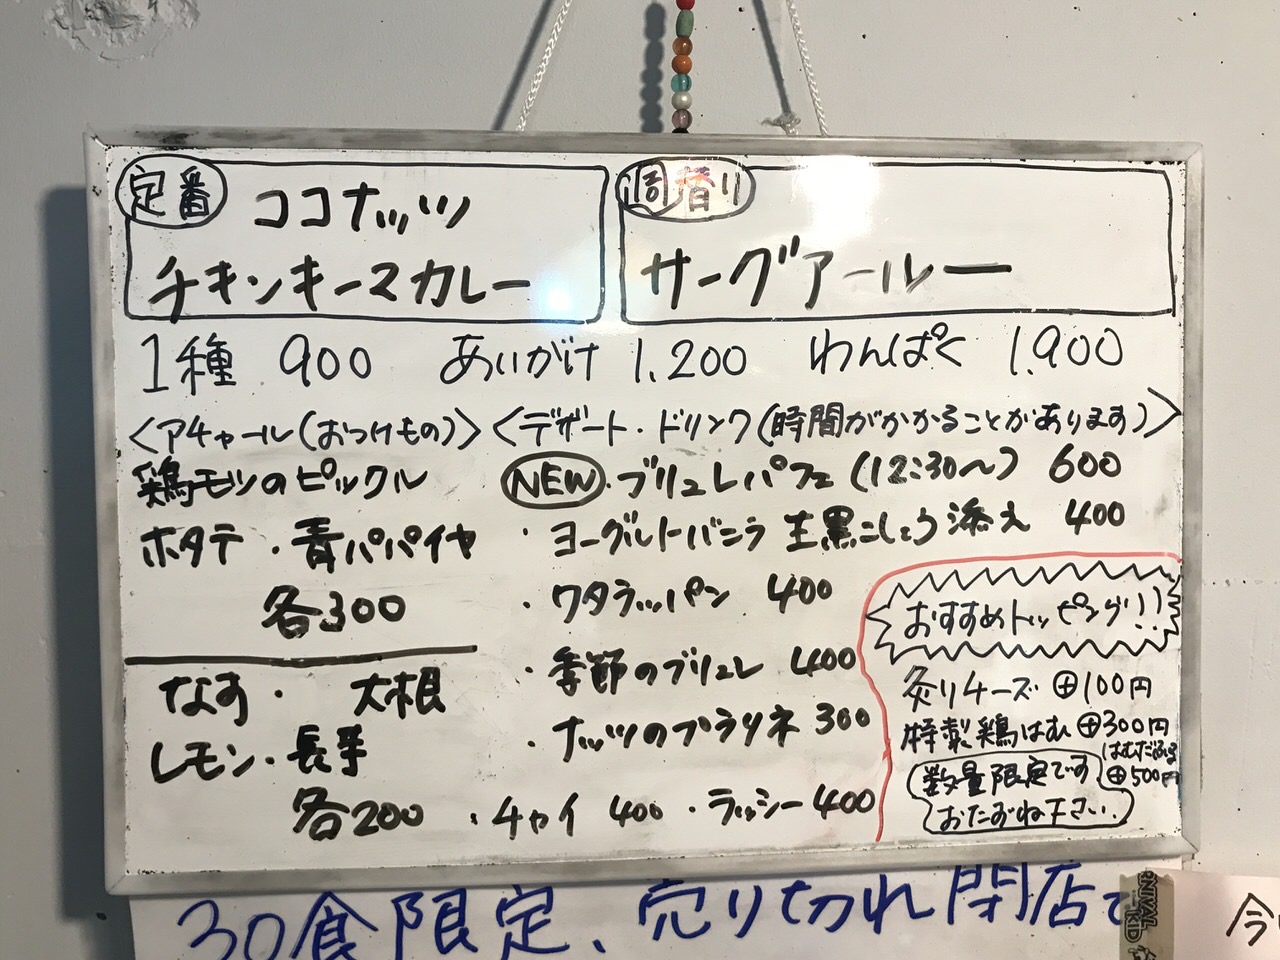 定番
ココナッツ
チキンキーマカレー
週替り
サーグアールー
1種 900 あいがけ 1,200 わんぱく 1,900
<アチャール(おつけもの)>
鶏モツのピックル
ホタテ・青パパイヤ
各300
なす・ 大根
レモン・長芋
各200
<デザート・ドリンク(時間がかかることがあります)>
NEW・ブリュレパフェ(12:30〜) 600
・ヨーグルトバニラ 生黒こしょう添え 400
・ワタラッパン 400
・季節のブリュレ 400
・ナッツのプラリネ 300
・チャイ 400 ・ラッシー 400
おすすめトッピング!!
炙りチーズ ⊕100円
特製鶏はむ ⊕300円
⊕500円
数量限定です
おたずね下さい
30食限定、売り切れ閉店で
RNIVAL
KID
今